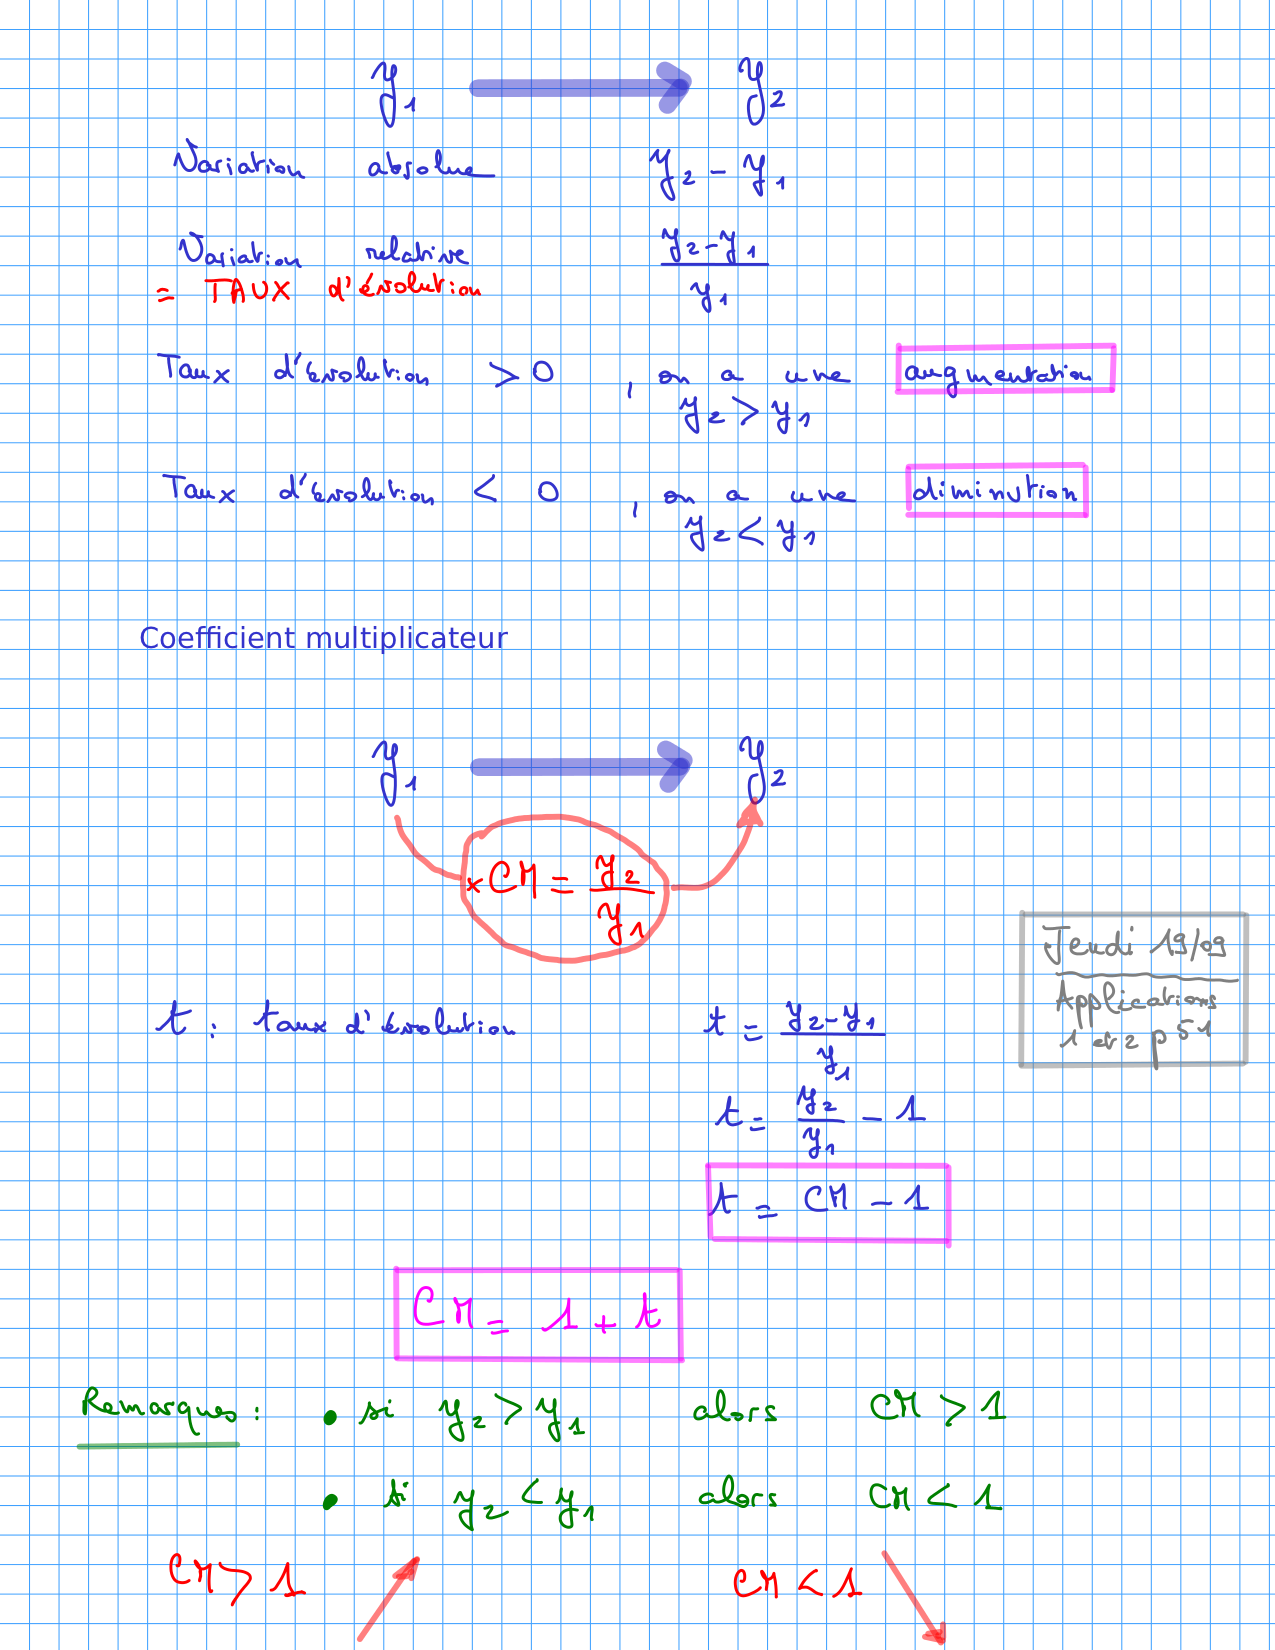 y₁ → y₂
Variation absolue y₂ - y₁
Variation relative (y₂-y₁)/y₁
= TAUX d'évolution
Taux d'évolution > 0 , on a une augmentation
y₂ > y₁
Taux d'évolution < 0 , on a une diminution
y₂ < y₁
Coefficient multiplicateur
y₁ → y₂
×CM = y₂/y₁
Jeudi 19/09
Applications
1 et 2 p 51
t : taux d'évolution t = (y₂-y₁)/y₁
t = y₂/y₁ - 1
t = CM - 1
CM = 1 + t
Remarques : • si y₂ > y₁ alors CM > 1
• si y₂ < y₁ alors CM < 1
CM > 1 ↗ CM < 1 ↘